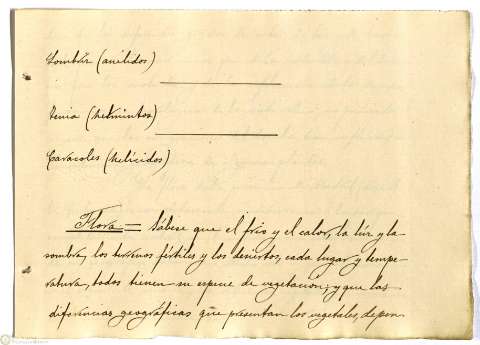 Lombriz (anélidos)
Tenia (helmintos)
Caracoles (helícidos)
Flora = Sábese que el frio y el calor, la lúz y la
sombra, los terrenos fértiles y los desiertos, cada lugar y tempe-
ratura, todos tienen su especie de vegetación; y que las
diferencias geográficas que presentan los vegetales, depen-